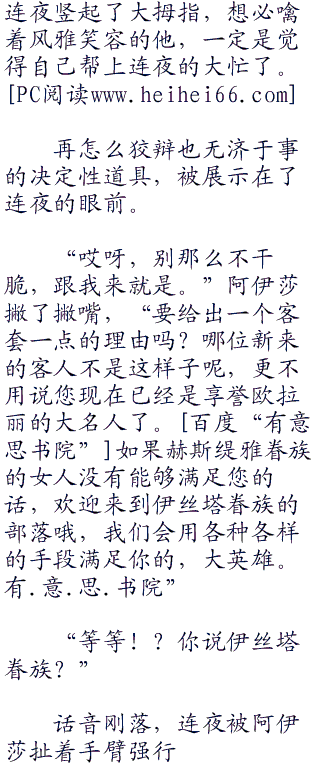 连夜竖起了大拇指，想必噙
着风雅笑容的他，一定是觉
得自己帮上连夜的大忙了。
[PC阅读www.heihei66.com]
再怎么狡辩也无济于事
的决定性道具，被展示在了
连夜的眼前。
“哎呀，别那么不干
脆，跟我来就是。”阿伊莎
撇了撇嘴，“要给出一个客
套一点的理由吗？哪位新来
的客人不是这样子呢，更不
用说您现在已经是享誉欧拉
丽的大名人了。[百度“有意
思书院”]如果赫斯缇雅眷族
的女人没有能够满足您的
话，欢迎来到伊丝塔眷族的
部落哦，我们会用各种各样
的手段满足你的，大英雄。
有.意.思.书院”
“等等！？你说伊丝塔
眷族？”
话音刚落，连夜被阿伊
莎扯着手臂强行